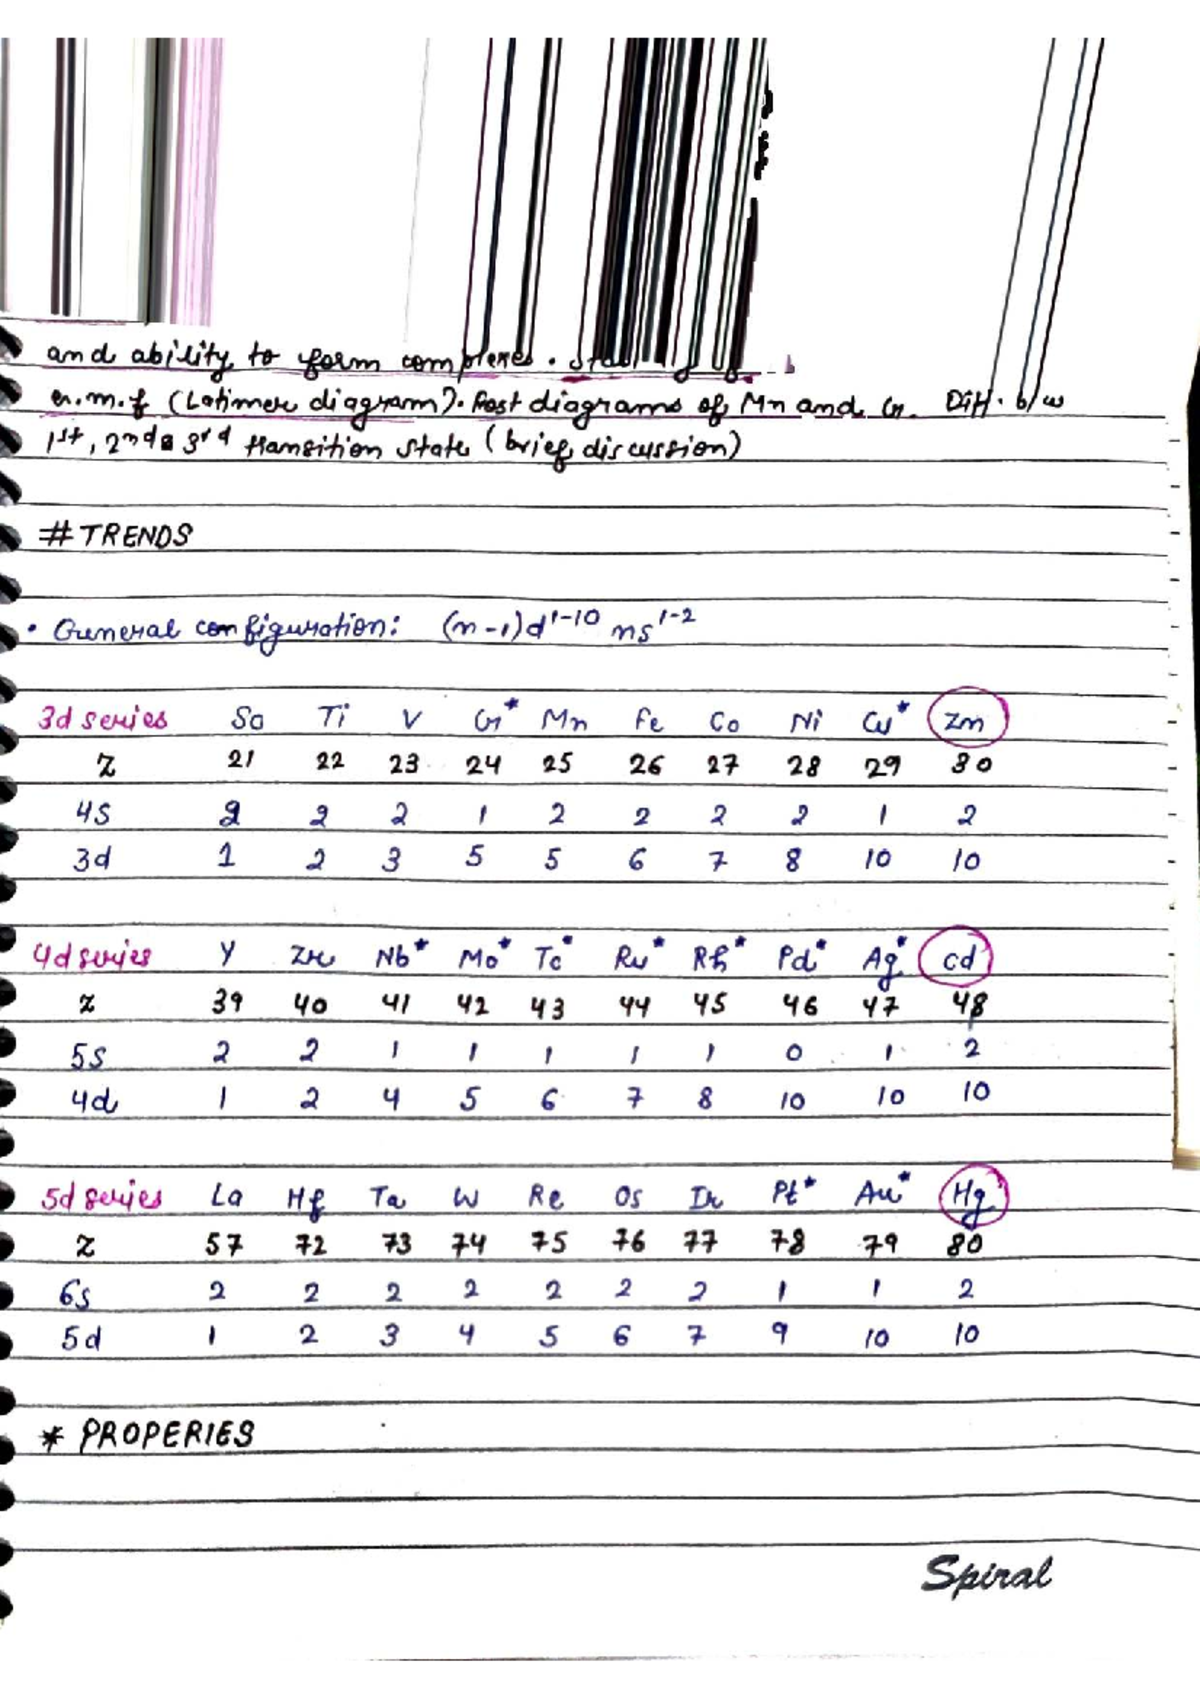 and ability to form complexes.
e.m.f (Latimer diagram). Frost diagrams of Mn and Cr. Diff. b/w
1st, 2nd & 3rd transition state (brief discussion)
# TRENDS
• General configuration: (n-1)d¹⁻¹⁰ ns¹⁻²
3d series Sc Ti V Cr* Mn Fe Co Ni Cu* Zn
Z 21 22 23 24 25 26 27 28 29 30
4s 2 2 2 1 2 2 2 2 1 2
3d 1 2 3 5 5 6 7 8 10 10
4d series Y Zr Nb* Mo* Tc* Ru* Rh* Pd* Ag* Cd
Z 39 40 41 42 43 44 45 46 47 48
5s 2 2 1 1 1 1 1 0 1 2
4d 1 2 4 5 6 7 8 10 10 10
5d series La Hf Ta W Re Os Ir Pt* Au* Hg
Z 57 72 73 74 75 76 77 78 79 80
6s 2 2 2 2 2 2 2 1 1 2
5d 1 2 3 4 5 6 7 9 10 10
* PROPERIES
Spiral